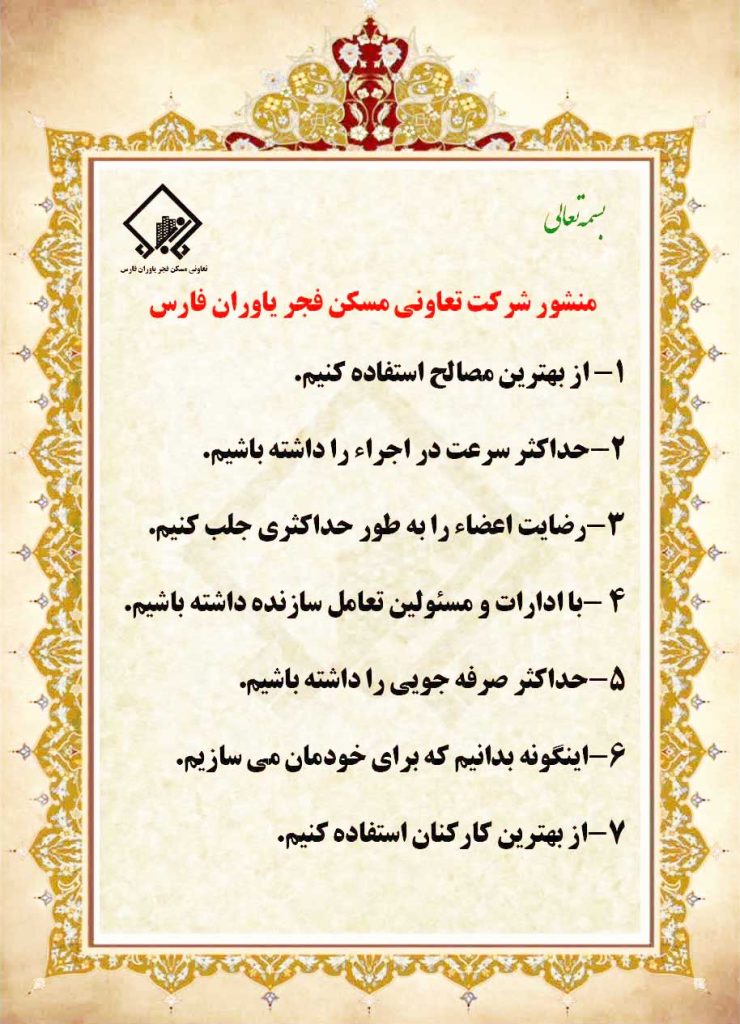 بسمه تعالی
تعاونی مسکن فجر یاوران فارس
منشور شرکت تعاونی مسکن فجر یاوران فارس
۱- از بهترین مصالح استفاده کنیم.
۲-حداکثر سرعت در اجراء را داشته باشیم.
۳-رضایت اعضاء را به طور حداکثری جلب کنیم.
۴ -با ادارات و مسئولین تعامل سازنده داشته باشیم.
۵-حداکثر صرفه جویی را داشته باشیم.
۶-اینگونه بدانیم که برای خودمان می سازیم.
۷-از بهترین کارکنان استفاده کنیم.